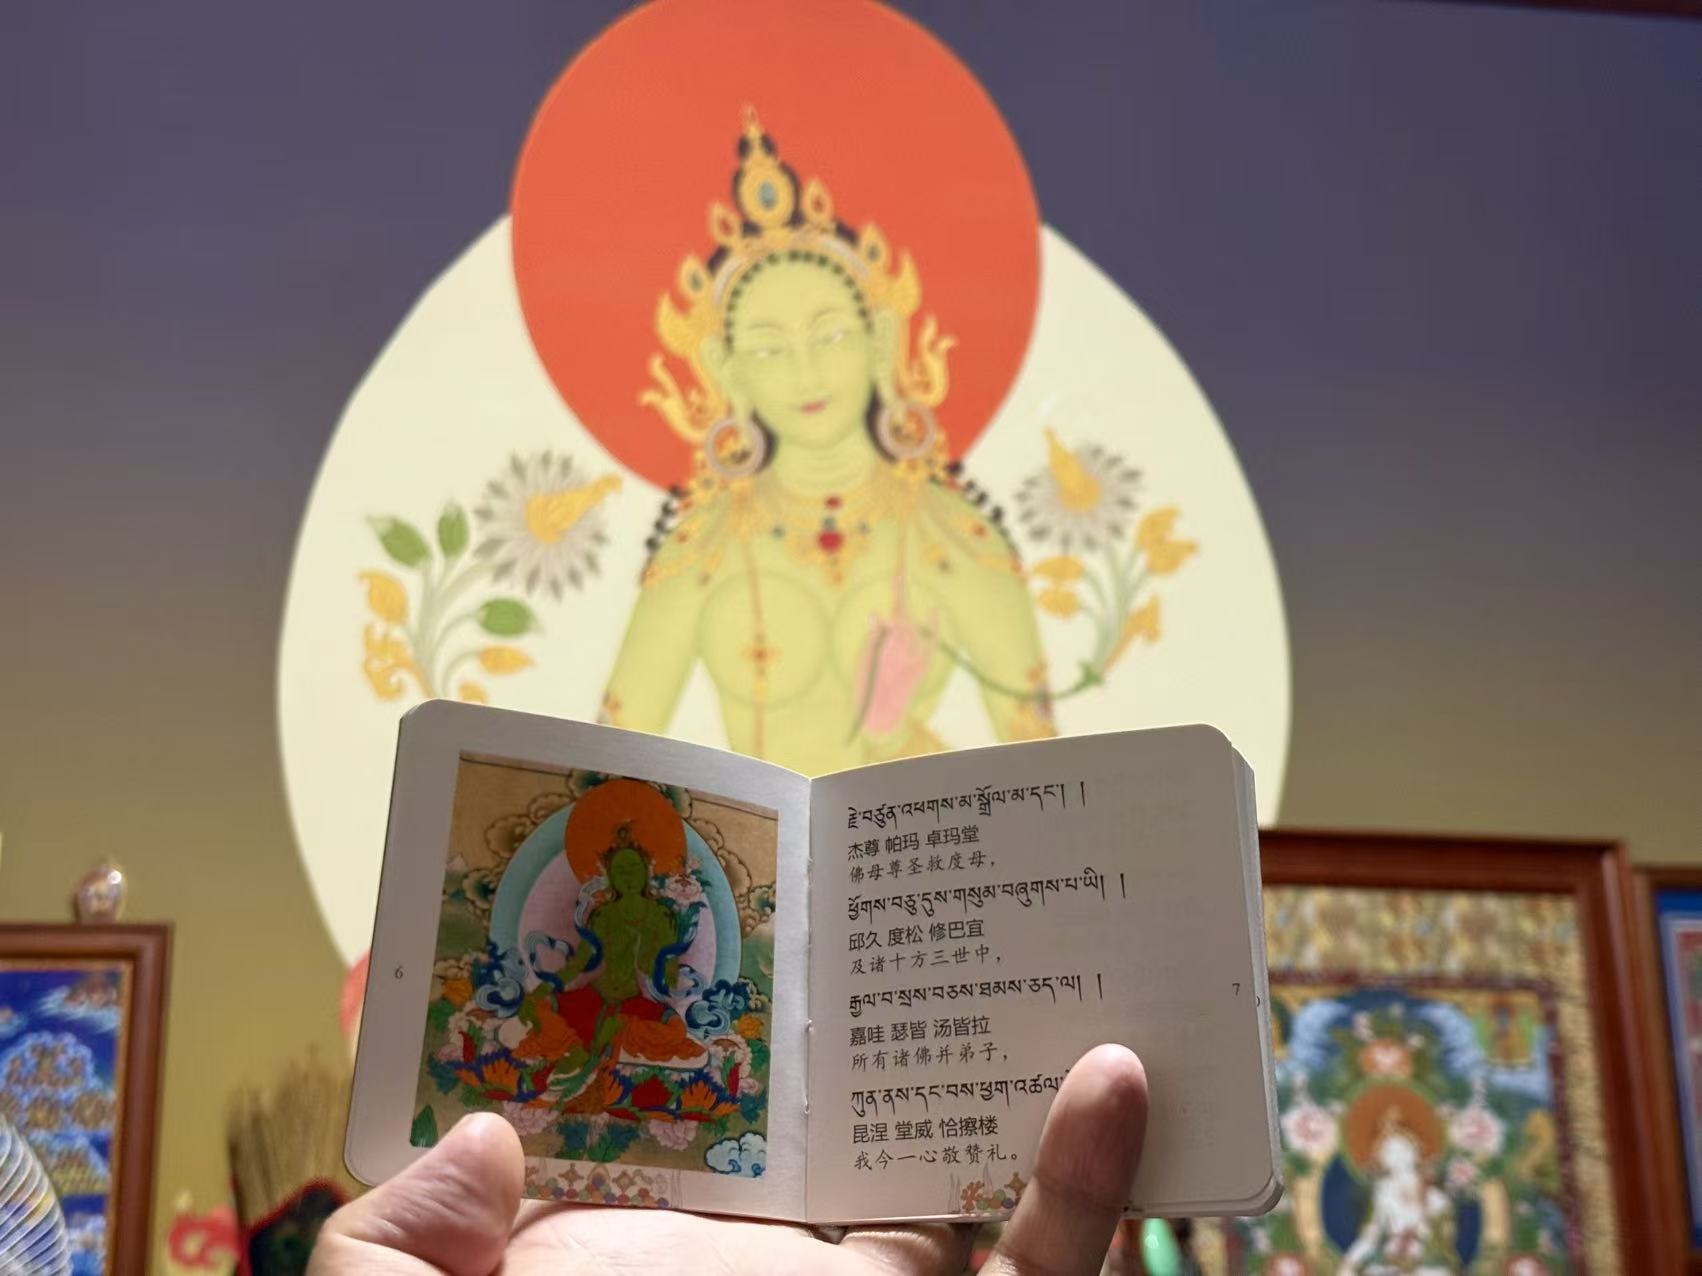 6
རྗེ་བཙུན་འཕགས་མ་སྒྲོལ་མ་དང་། །
杰尊 帕玛 卓玛堂
佛母尊圣救度母，
ཕྱོགས་བཅུ་དུས་གསུམ་བཞུགས་པ་ཡི། །
邱久 度松 修巴宜
及诸十方三世中，
རྒྱལ་བ་སྲས་བཅས་ཐམས་ཅད་ལ། །
嘉哇 瑟皆 汤皆拉
所有诸佛并弟子，
ཀུན་ནས་དང་བས་ཕྱག་འཚལ་
昆涅 堂威 恰擦楼
我今一心敬赞礼。
7